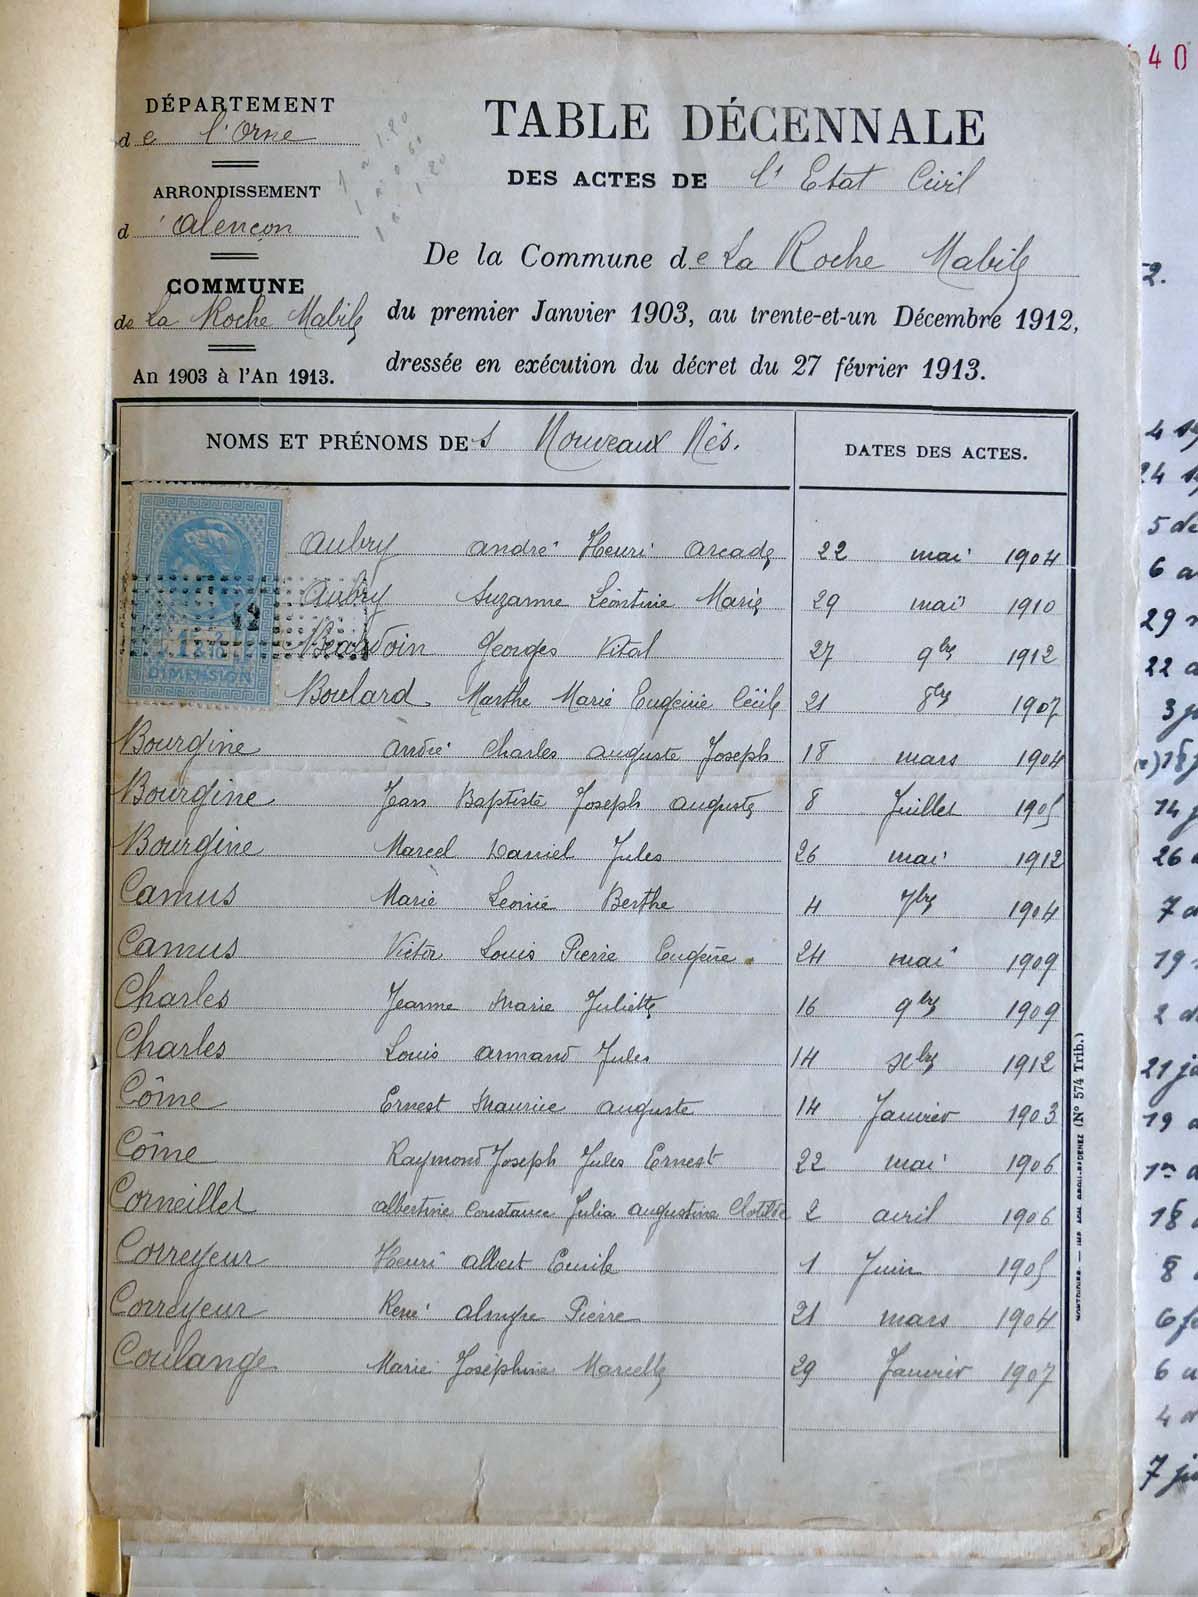 40
DÉPARTEMENT
de l'Orne
ARRONDISSEMENT
d'Alençon
COMMUNE
de La Roche Mabile
An 1903 à l'An 1913.
TABLE DÉCENNALE
DES ACTES DE l'Etat Civil
De la Commune de La Roche Mabile
du premier Janvier 1903, au trente-et-un Décembre 1912,
dressée en exécution du décret du 27 février 1913.
NOMS ET PRÉNOMS DEs Nouveaux Nés. DATES DES ACTES.
DIMENSION
Aubry André Henri Arcade 22 mai 1904
Aubry Suzanne Léontine Marie 29 mai 1910
Beaudoin Georges Vital 27 9bre 1912
Boulard Marthe Marie Eugénie Cécile 21 8bre 1907
Bourgine André Charles Auguste Joseph 18 mars 1904
Bourgine Jean Baptiste Joseph Auguste 8 Juillet 1905
Bourgine Marcel Daniel Jules 26 mai 1912
Camus Marie Léonie Berthe 4 7bre 1904
Camus Victor Louis Pierre Eugène 24 mai 1909
Charles Jeanne Marie Juliette 16 9bre 1909
Charles Louis Armand Jules 14 xbre 1912
Côme Ernest Maurice Auguste 14 Janvier 1903
Côme Raymond Joseph Jules Ernest 22 mai 1906
Corneillet Albertine Constance Julia Augustine Clotilde 2 avril 1906
Correyeur Henri Albert Emile 1 Juin 1905
Correyeur René Almyre Pierre 21 mars 1904
Coulange Marie Joséphine Marcelle 29 Janvier 1907
(N° 574 Trib.)